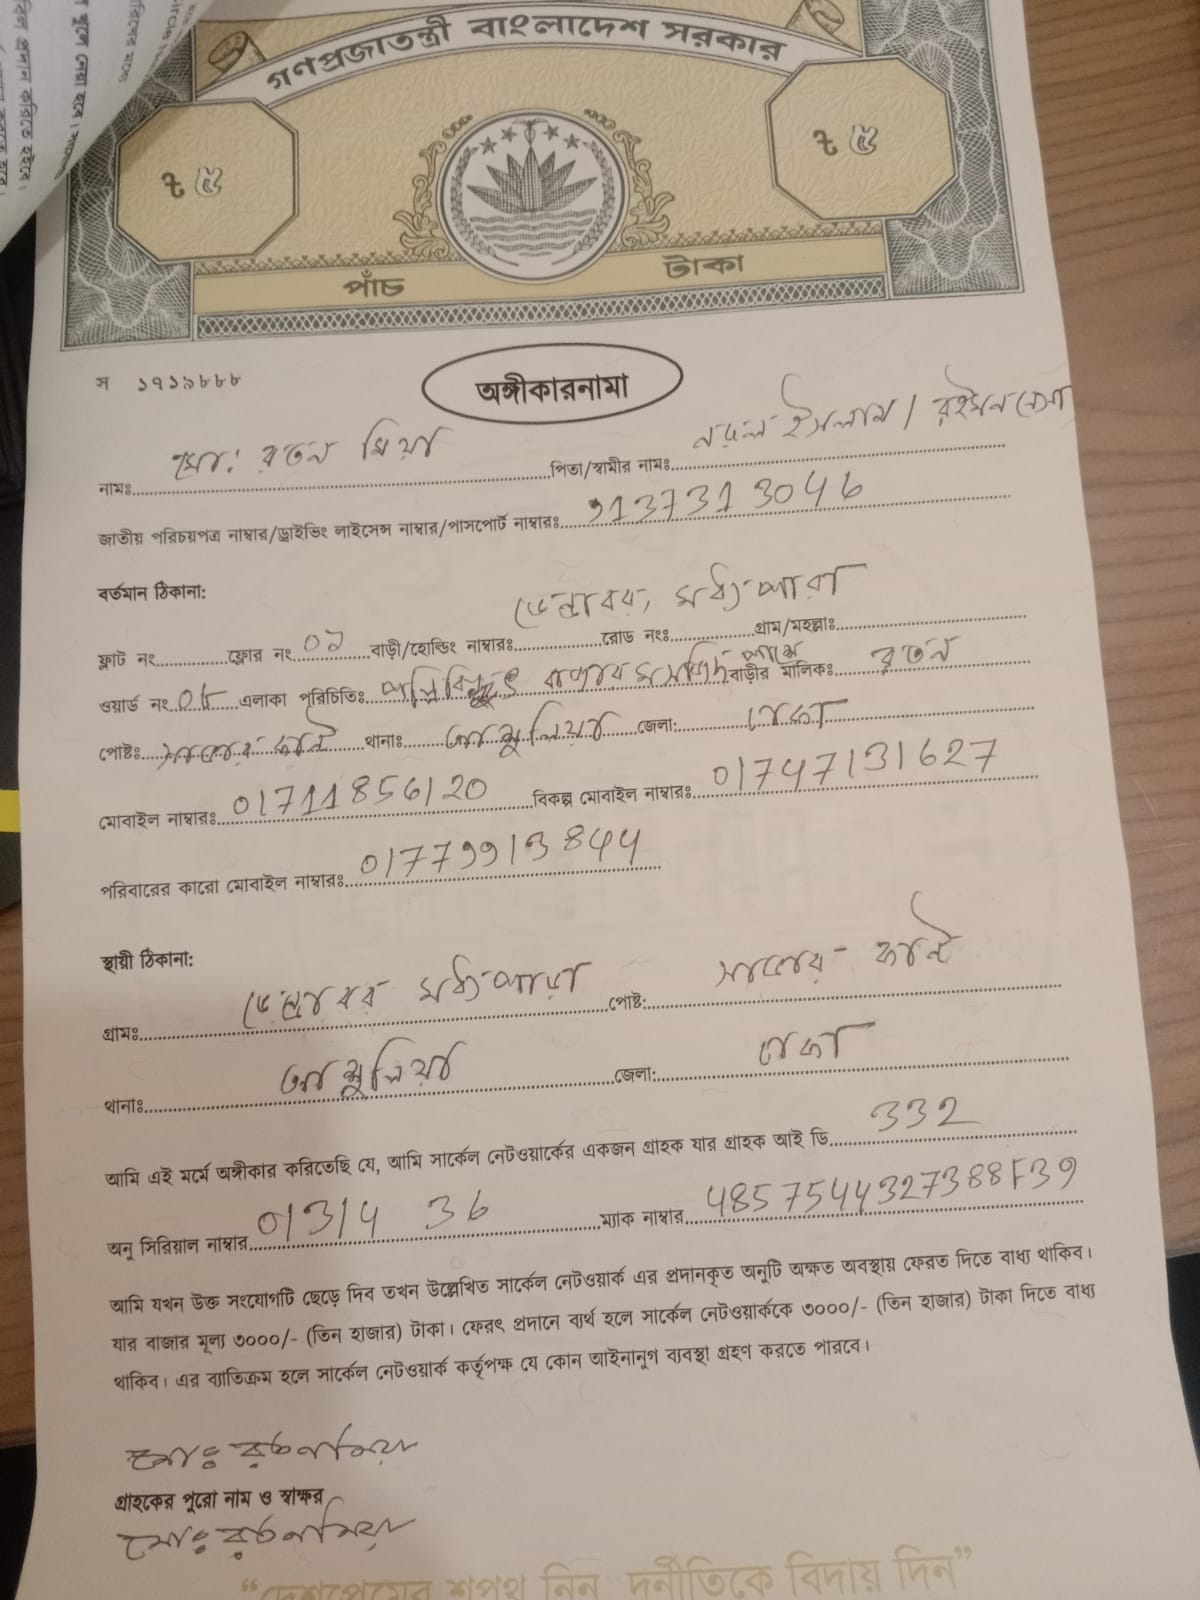 গণপ্রজাতন্ত্রী বাংলাদেশ সরকার
৳ ৫ ৳ ৫
পাঁচ টাকা
স ১৭১৯৮৮৮
অঙ্গীকারনামা
নামঃ মো: রতন মিয়া পিতা/স্বামীর নামঃ ইসলাম /
জাতীয় পরিচয়পত্র নাম্বার/ড্রাইভিং লাইসেন্স নাম্বার/পাসপোর্ট নাম্বারঃ 9137313046
বর্তমান ঠিকানা:
ফ্লাট নং ফ্লোর নং 02 বাড়ী/হোল্ডিং নাম্বারঃ রোড নং গ্রাম/মহল্লাঃ ডেন্ডাবর, মধ্যপাড়া
ওয়ার্ড নং 05 এলাকা পরিচিতিঃ পল্লিবিদ্যুৎ বাজার মসজিদ পাশে বাড়ীর মালিকঃ রতন
পোষ্টঃ থানাঃ আশুলিয়া জেলা: ঢাকা
মোবাইল নাম্বারঃ 01711856120 বিকল্প মোবাইল নাম্বারঃ 01747131627
পরিবারের কারো মোবাইল নাম্বারঃ 01779913844
স্থায়ী ঠিকানা:
গ্রামঃ ডেন্ডাবর মধ্যপাড়া পোষ্ট:
থানাঃ আশুলিয়া জেলা: ঢাকা
আমি এই মর্মে অঙ্গীকার করিতেছি যে, আমি সার্কেল নেটওয়ার্কের একজন গ্রাহক যার গ্রাহক আই ডি 332
অনু সিরিয়াল নাম্বার 01314 36 ম্যাক নাম্বার 4857544327388F39
আমি যখন উক্ত সংযোগটি ছেড়ে দিব তখন উল্লেখিত সার্কেল নেটওয়ার্ক এর প্রদানকৃত অনুটি অক্ষত অবস্থায় ফেরত দিতে বাধ্য থাকিব।
যার বাজার মূল্য ৩০০০/- (তিন হাজার) টাকা। ফেরৎ প্রদানে ব্যর্থ হলে সার্কেল নেটওয়ার্ককে ৩০০০/- (তিন হাজার) টাকা দিতে বাধ্য
থাকিব। এর ব্যাতিক্রম হলে সার্কেল নেটওয়ার্ক কর্তৃপক্ষ যে কোন আইনানুগ ব্যবস্থা গ্রহণ করতে পারবে।
মোঃ রতন মিয়া
গ্রাহকের পুরো নাম ও স্বাক্ষর
মোঃ রতন মিয়া
“দেশপ্রেমের শপথ নিন, দুর্নীতিকে বিদায় দিন”